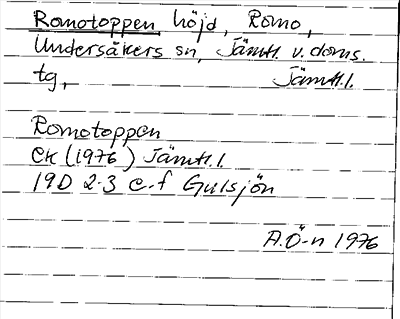 Romotoppen höjd, Romo,
Undersåkers sn, Jämtl. v. doms.
tg, Jämtl. l.
Romotoppen
EK (1976) Jämtl. l.
19D 2-3 e-f Gulsjön
A.Ö-n 1976